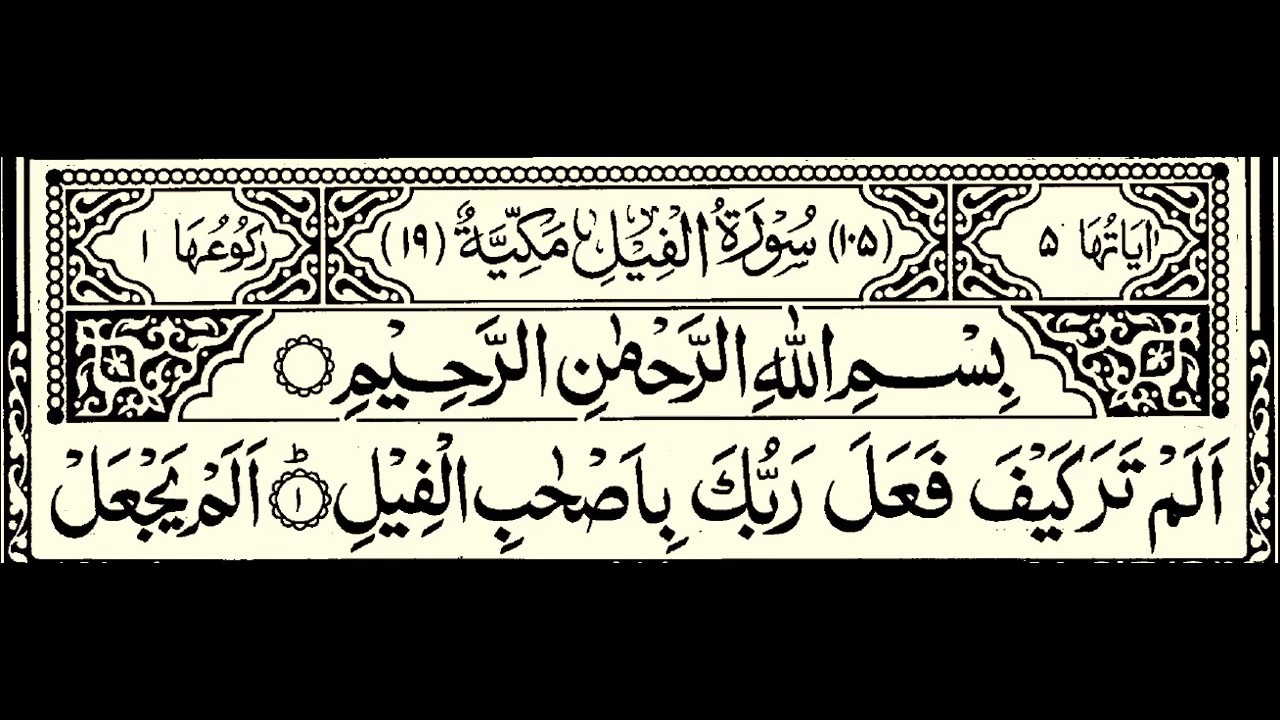 اٰيَاتُهَا ٥ (١٠٥) سُوْرَةُ الْفِيْلِ مَكِّيَّةٌ (١٩) رُكُوْعُهَا ١
بِسْمِ اللّٰهِ الرَّحْمٰنِ الرَّحِيْمِ ۝
اَلَمْ تَرَ كَيْفَ فَعَلَ رَبُّكَ بِاَصْحٰبِ الْفِيْلِ ؕ ۝١ اَلَمْ يَجْعَلْ